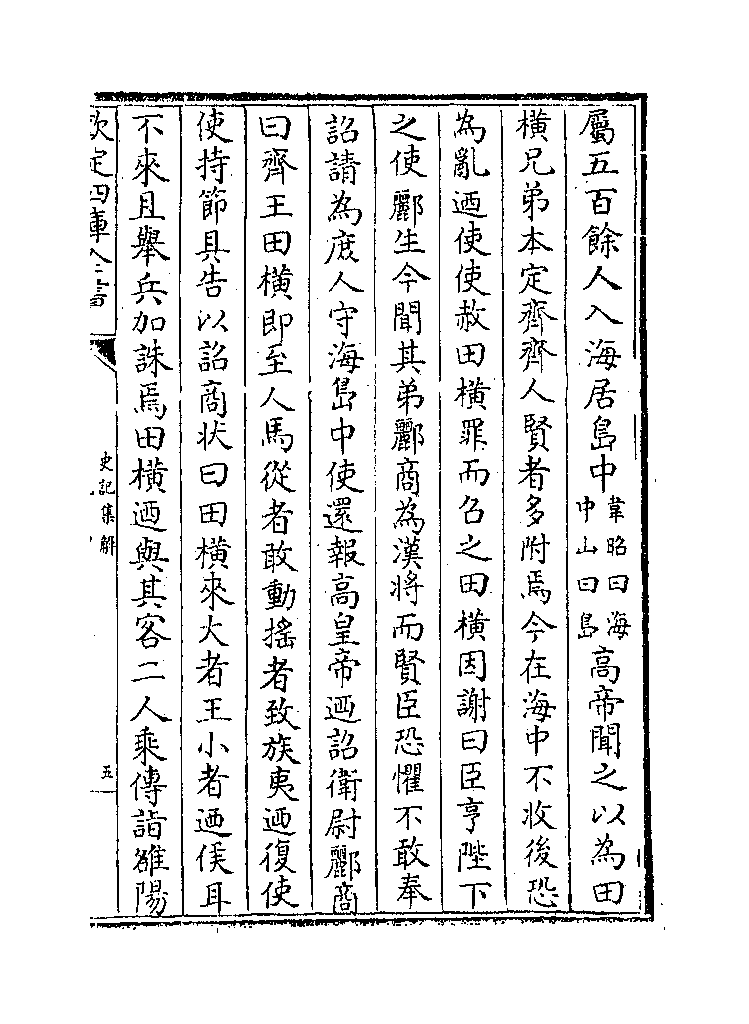 屬五百餘人入海居島中韋昭曰海中山曰島高帝聞之以為田
橫兄弟本定齊齊人賢者多附焉今在海中不收後恐
為亂迺使使赦田橫罪而召之田橫因謝曰臣亨陛下
之使酈生今聞其弟酈商為漢將而賢臣恐懼不敢奉
詔請為庶人守海島中使還報高皇帝迺詔衛尉酈商
曰齊王田橫即至人馬從者敢動搖者致族夷迺復使
使持節具告以詔商状曰田橫來大者王小者迺侯耳
不來且舉兵加誅焉田橫迺與其客二人乘傳詣雒陽
欽定四庫全書
史記集解
五